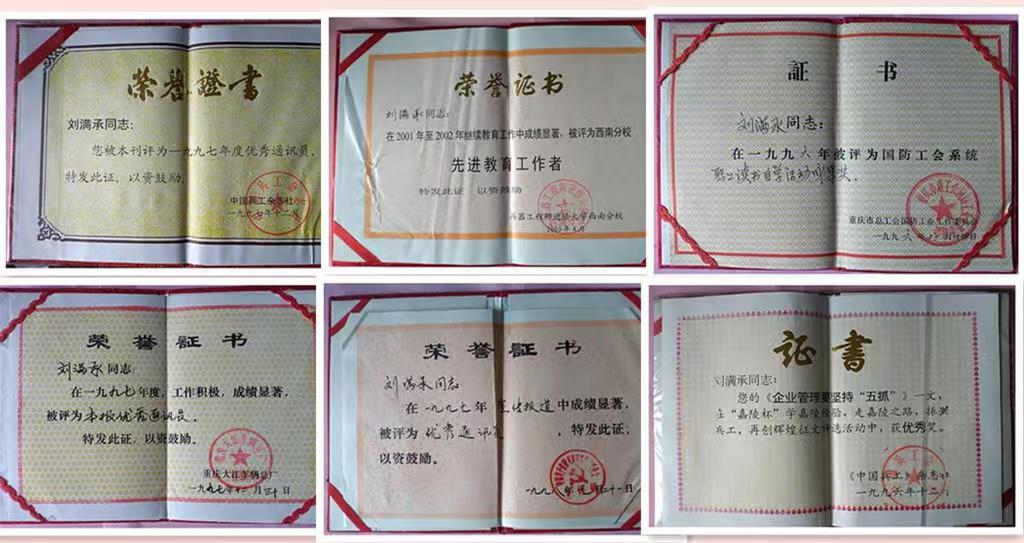 荣誉證書
刘满承同志：
您被本刊评为一九九七年度优秀通讯员，
特发此证，以资鼓励。
中国兵工杂志社
一九九七年十二月
荣誉证书
刘满承同志：
在2001年至2002年继续教育工作中成绩显著，被评为西南分校
先进教育工作者
特发此证 以资鼓励
兵器工程师进修大学西南分校
証书
刘满承同志：
在一九九六年被评为国防工会系统
职工读书自学活动
重庆市总工会国防工会工作委员会
一九九六年十
荣誉証书
刘满承同志：
在一九九七年度，工作积极，成绩显著，
被评为本报优秀通讯员。
特发此证，以资鼓励。
重庆大江车辆总厂
一九九七年十二月三十日
荣誉証书
刘满承同志
在一九九七年宣传报道中成绩显著，
被评为优秀通讯员，特发此证，
以资鼓励。
一九九八年 月二十一日
证書
刘满承同志：
您的《企业管理要坚持“五抓”》一文，
在“嘉陵杯”学嘉陵经验，走嘉陵之路，振兴
兵工，再创辉煌征文评选活动中，获优秀奖。
《中国兵工》杂志社
一九九六年十二月